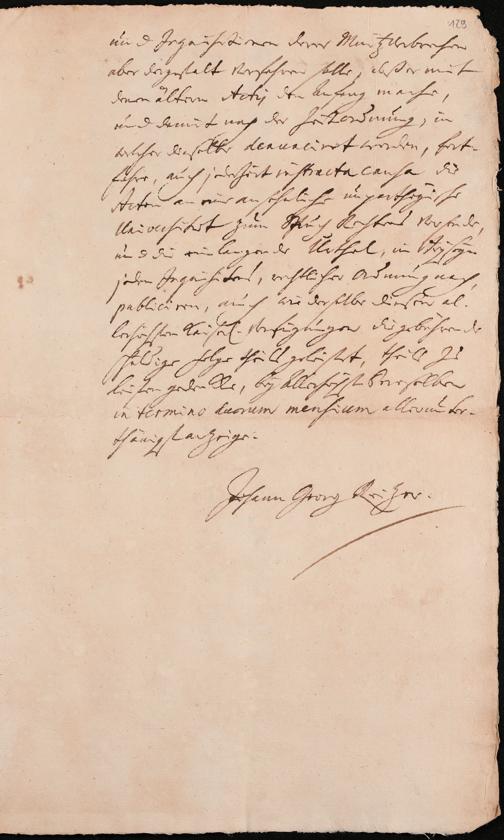 129
und Inquisitionen derer Müntzverbrechen
aber dergestalt verfahren solle, daß er mit
denen ältern Actis den Anfang mache,
und damit nach der Zeitordnung, in
welcher dieselbe denunciret worden, fort-
fahre, auch jederzeit instructa causa die
Acten an eine ansehnliche unpartheyische
Universitæt zum Spruch Rechtens versende,
und die einlangende Urthel, in
jeden Inquisiten, rechtlicher Ordnung nach,
publiciren, auch wie derselbe diesen al-
lerhöchsten Kaiserl. Verfügungen die gebührende
schuldige folge theils geleistet, theils zu
leisten gedencke, bey allerhöchst Deroselben
in termino duorum mensium allerunter-
thänigst anzeige.
Johann Georg